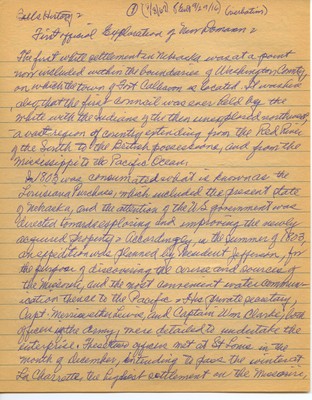 Bells History 2
① (1/3/60) (Bell 9/29/16) (
First official Exploration of
The first white settlement in Nebraska was at a point
now included within the boundaries of Washington County,
on which the town of Fort Calhoun is located. It was here
also, that the first council was ever held by the
white with the indians of the then unexplored northwest,
a vast region of country extending from the Red River
of the South to the British possessions, and from the
Mississippi to the Pacific Ocean.
In 1803 was consumated what is known as the
Louisiana Purchase, which included the present state
of Nebraska, and the attention of the U.S. government was
directed towards exploring and improving the newly
acquired property. Accordingly, in the Summer of 1803,
an expedition was planned by President Jefferson, for
the purpose of discovering the course and sources of
the Missouri, and the most convenient water commun-
ication thence to the Pacific. His private secretary,
Capt. Meriwether Lewis, and Captain Wm. Clarke, both
officers in the Army, were detailed to undertake the
enterprise. These two officers met at St Louis in the
month of December, intending to pass the winter at
La Charrette, the highest settlement on the Missouri,